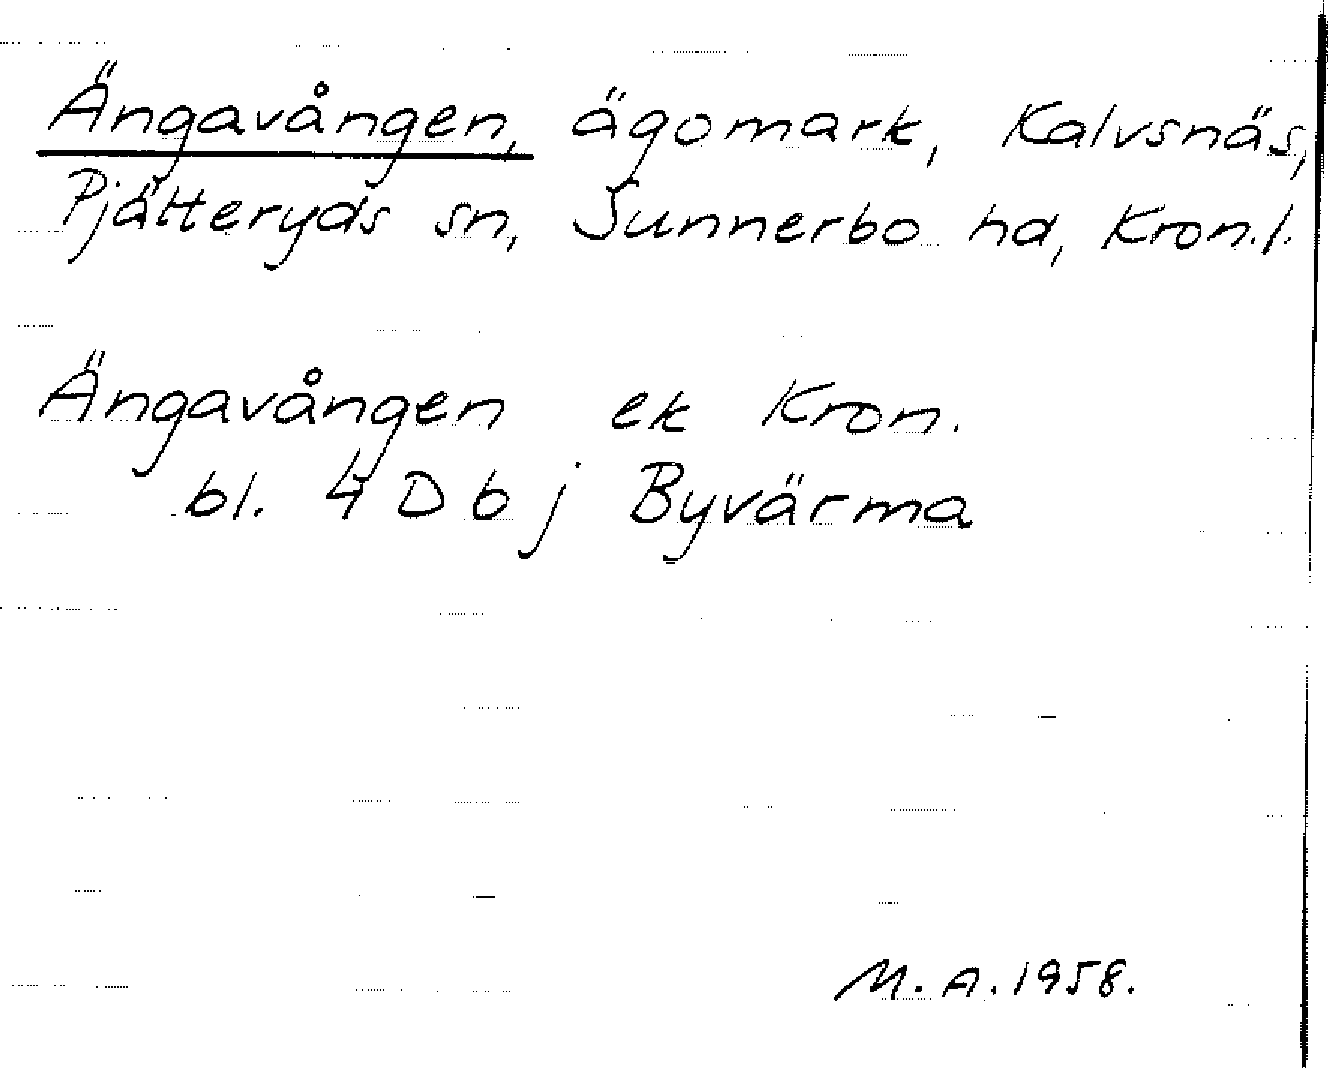 Ängavången, ägomark, Kalvsnäs,
Pjätteryds sn, Sunnerbo hd, Kron.l.
Ängavången ek Kron.
bl. 4 D b j Byvärma
M.A. 1958.